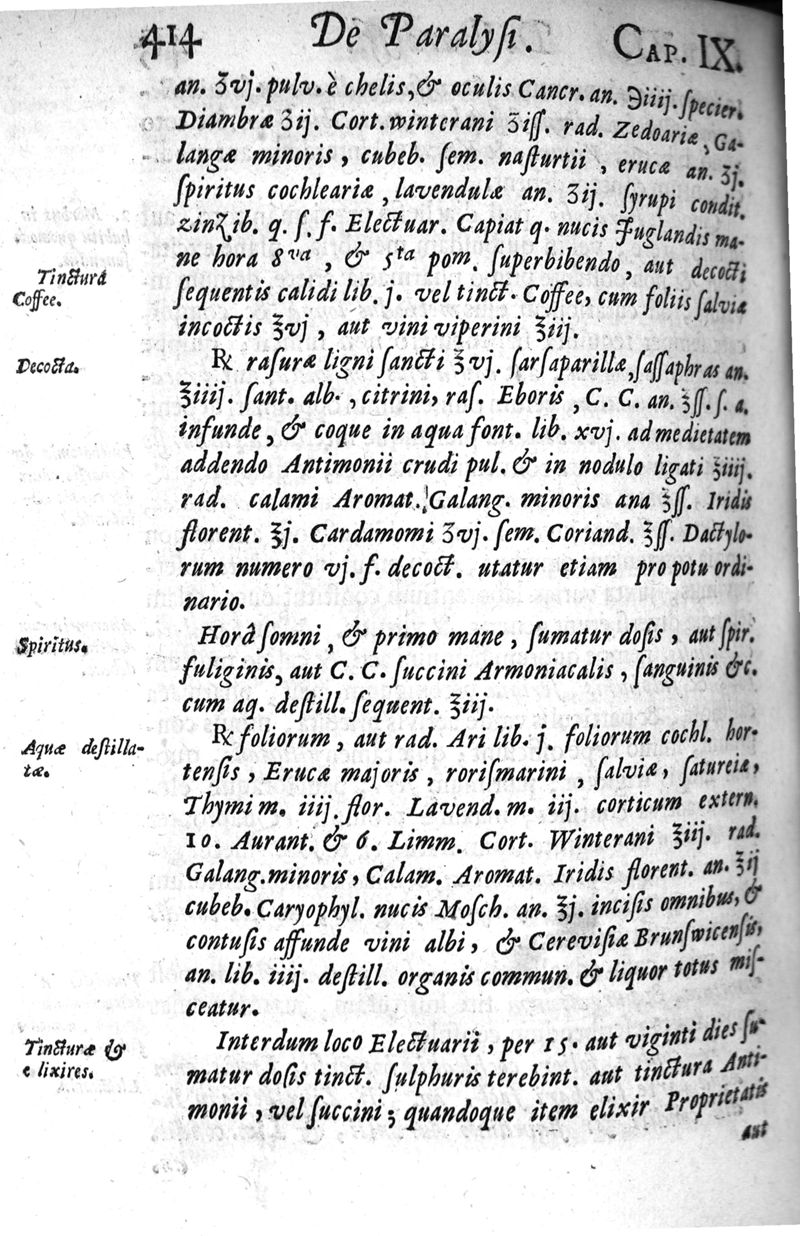 414 De Paralyſi. CAP. IX.
an. ʒvj. pulv. è chelis, & oculis Cancr. an. ℈iiij. ſpecier.
Diambræ ʒij. Cort. winterani ʒiſſ. rad. Zedoariæ, Ga-
langæ minoris, cubeb. ſem. naſturtii, erucæ an. ʒj.
ſpiritus cochleariæ, lavendulæ an. ʒij. ſyrupi condit.
zinʒib. q. ſ. f. Electuar. Capiat q. nucis Juglandis ma-
ne hora 8va, & 5ta pom. ſuperbibendo, aut decocti
Tincturâ
Coffee.
ſequentis calidi lib. j. vel tinct. Coffee, cum foliis ſalviæ
incoctis ℥vj, aut vini viperini ℥iij.
Decocta.
℞ raſuræ ligni ſancti ℥vj. ſarſaparillæ, ſaſſaphras an.
℥iiij. ſant. alb., citrini, raſ. Eboris, C. C. an. ℥ſſ. ſ. a.
infunde, & coque in aqua font. lib. xvj. ad medietatem
addendo Antimonii crudi pul. & in nodulo ligati ℥iiij.
rad. calami Aromat. Galang. minoris ana ℥ſſ. Iridis
florent. ℥j. Cardamomi ʒvj. ſem. Coriand. ℥ſſ. Dactylo-
rum numero vj. f. decoct. utatur etiam pro potu ordi-
nario.
Spiritus.
Horâ ſomni, & primo mane, ſumatur doſis, aut ſpir.
fuliginis, aut C. C. ſuccini Armoniacalis, ſanguinis &c.
cum aq. deſtill. ſequent. ℥iij.
Aquæ deſtilla-
tæ.
℞ foliorum, aut rad. Ari lib. j. foliorum cochl. hor-
tenſis, Erucæ majoris, roriſmarini, ſalviæ, ſatureiæ,
Thymi m. iiij. flor. Lavend. m. iij. corticum extern.
10. Aurant. & 6. Limm. Cort. Winterani ℥iij. rad.
Galang. minoris, Calam. Aromat. Iridis florent. an. ℥ij
cubeb. Caryophyl. nucis Moſch. an. ℥j. inciſis omnibus, &
contuſis affunde vini albi, & Cereviſiæ Brunſwicenſis,
an. lib. iiij. deſtill. organis commun. & liquor totus miſ-
ceatur.
Tincturæ &
elixires.
Interdum loco Electuarii, per 15. aut viginti dies ſu-
matur doſis tinct. ſulphuris terebint. aut tinctura Anti-
monii, vel ſuccini; quandoque item elixir Proprietatis
aut